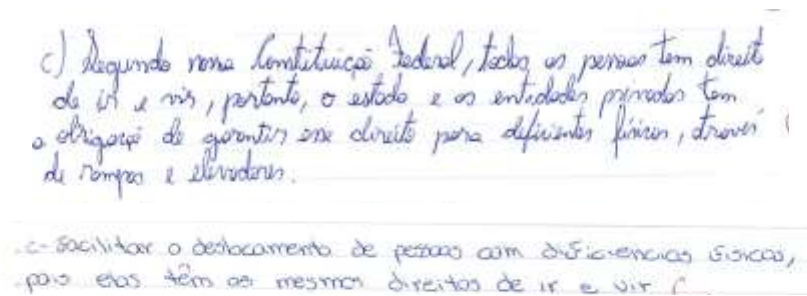 c) Segundo nossa Constituição Federal, todas as pessoas tem direito
de ir e vir, portanto, o estado e as entidades privadas tem
a obrigação de garantir esse direito para deficientes físicos, através
de rampas e elevadores.
c- Facilitar o deslocamento de pessoas com deficiencias físicas,
pois elas têm os mesmos direitos de ir e vir